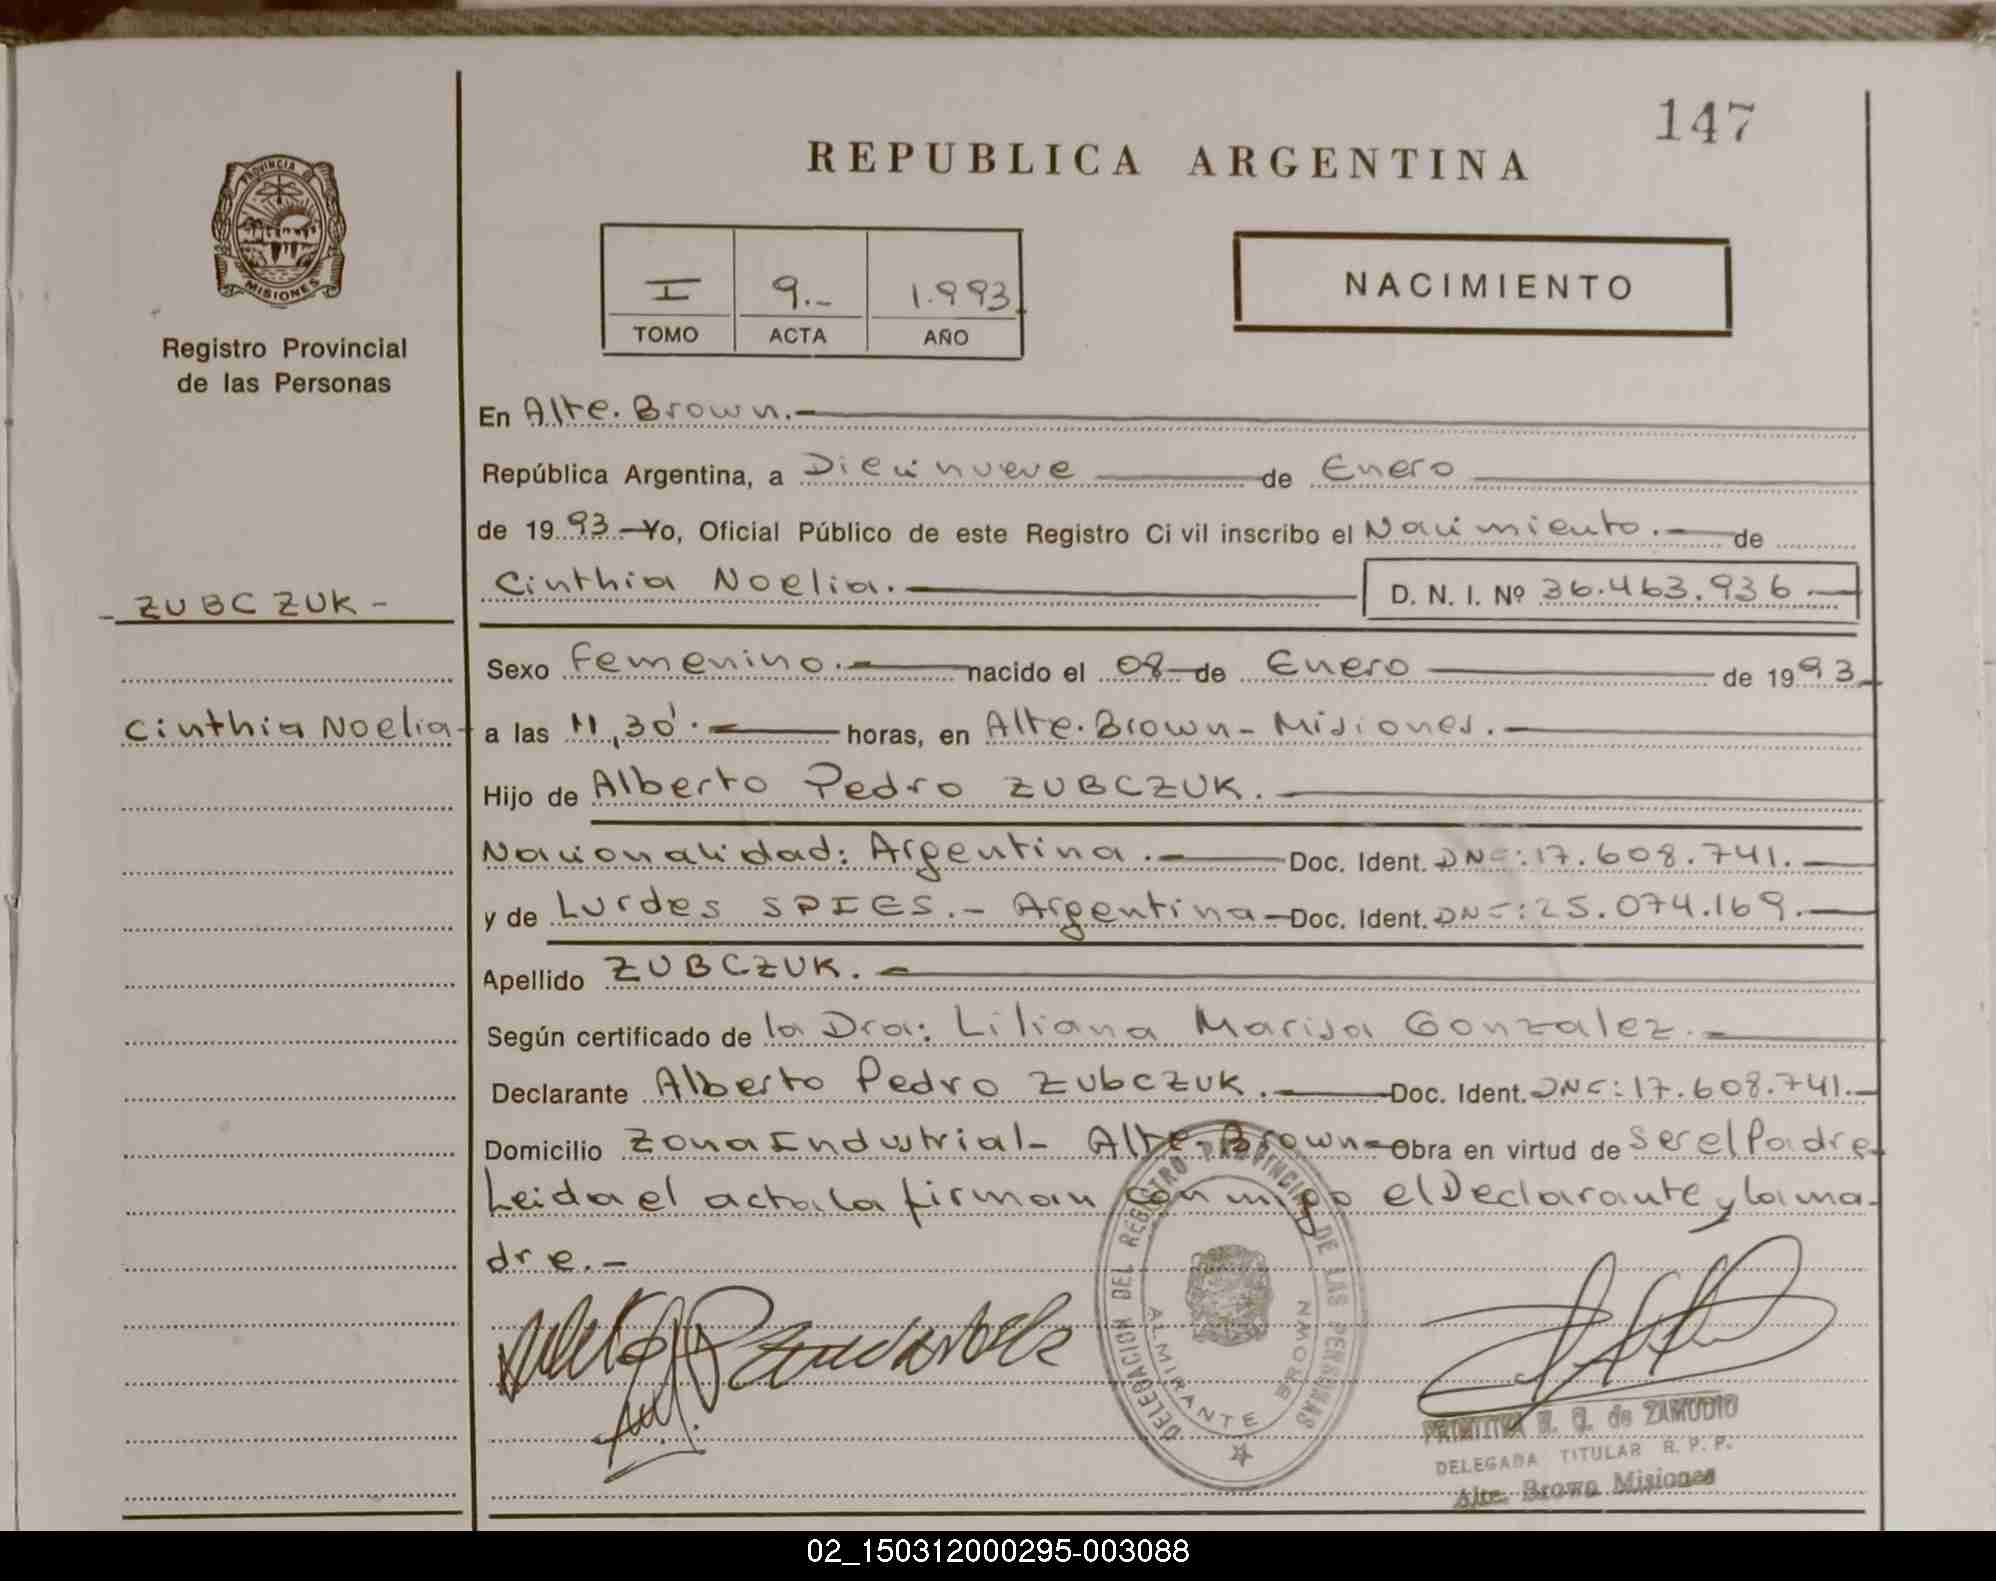 147
REPUBLICA ARGENTINA
PROVINCIA DE
MISIONES
Registro Provincial
de las Personas
I 9.- 1.993
TOMO ACTA AÑO
NACIMIENTO
En Alte. Brown.-
República Argentina, a Diecinueve de Enero
de 19 93 - Yo, Oficial Público de este Registro Civil inscribo el Nacimiento.- de
- ZUBCZUK -
Cinthia Noelia.- D. N. I. Nº 36.463.936 -
Sexo Femenino.- nacido el 08 de Enero de 19 93
Cinthia Noelia-
a las 11,30'.- horas, en Alte. Brown - Misiones.-
Hijo de Alberto Pedro ZUBCZUK.-
Nacionalidad: Argentina.- Doc. Ident. DNI: 17.608.741.-
y de Lurdes SPIES.- Argentina - Doc. Ident. DNI: 25.074.169.-
Apellido ZUBCZUK.-
Según certificado de la Dra: Liliana Marisa Gonzalez.-
Declarante Alberto Pedro Zubczuk.- Doc. Ident. DNI: 17.608.741.-
Domicilio Zona Industrial - Alte. Brown - Obra en virtud de Ser el Padre-
Leida el acta la firman conmigo el Declarante y la ma-
dre.-
DELEGACION DEL REGISTRO PROVINCIAL DE LAS PERSONAS
ALMIRANTE BROWN
PRIMITIVA de ZAMUDIO
DELEGADA TITULAR R. P. P.
Alte. Brown Misiones
02_150312000295-003088